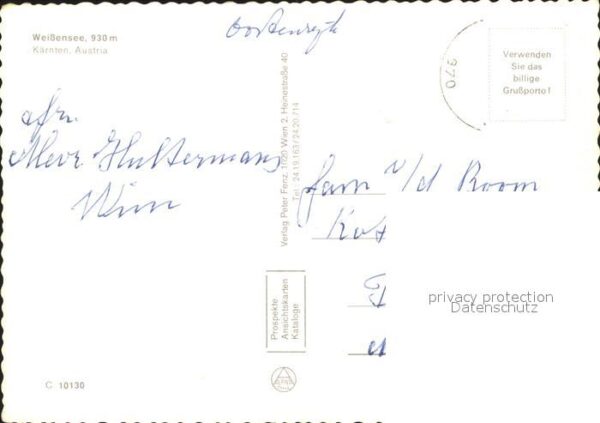 Weißensee, 930 m
Kärnten, Austria
Oostenryk
970
Verwenden
Sie das
billige
Grußporto!
afz.
Mevr. Hultermans
Wim
Verlag Peter Fenz, 1020 Wien 2, Heinestraße 40
Tel. 24 19 163/24 20 714
fam v/d Boom
Prospekte
Ansichtskarten
Kataloge
privacy protection
Datenschutz
C 10130